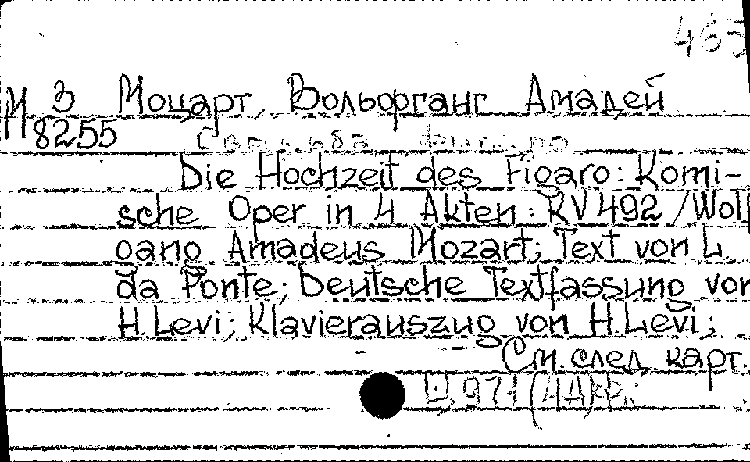 463
М 3 Моцарт, Вольфганг Амадей
8255 Свадьба Фигаро
Die Hochzeit des Figaro: Komi-
sche Oper in 4 Akten: KV 492 / Wolf
gang Amadeus Mozart; Text von L.
da Ponte; Deutsche Textfassung von
H. Levi; Klavierauszug von H. Levi;
См. след. карт.